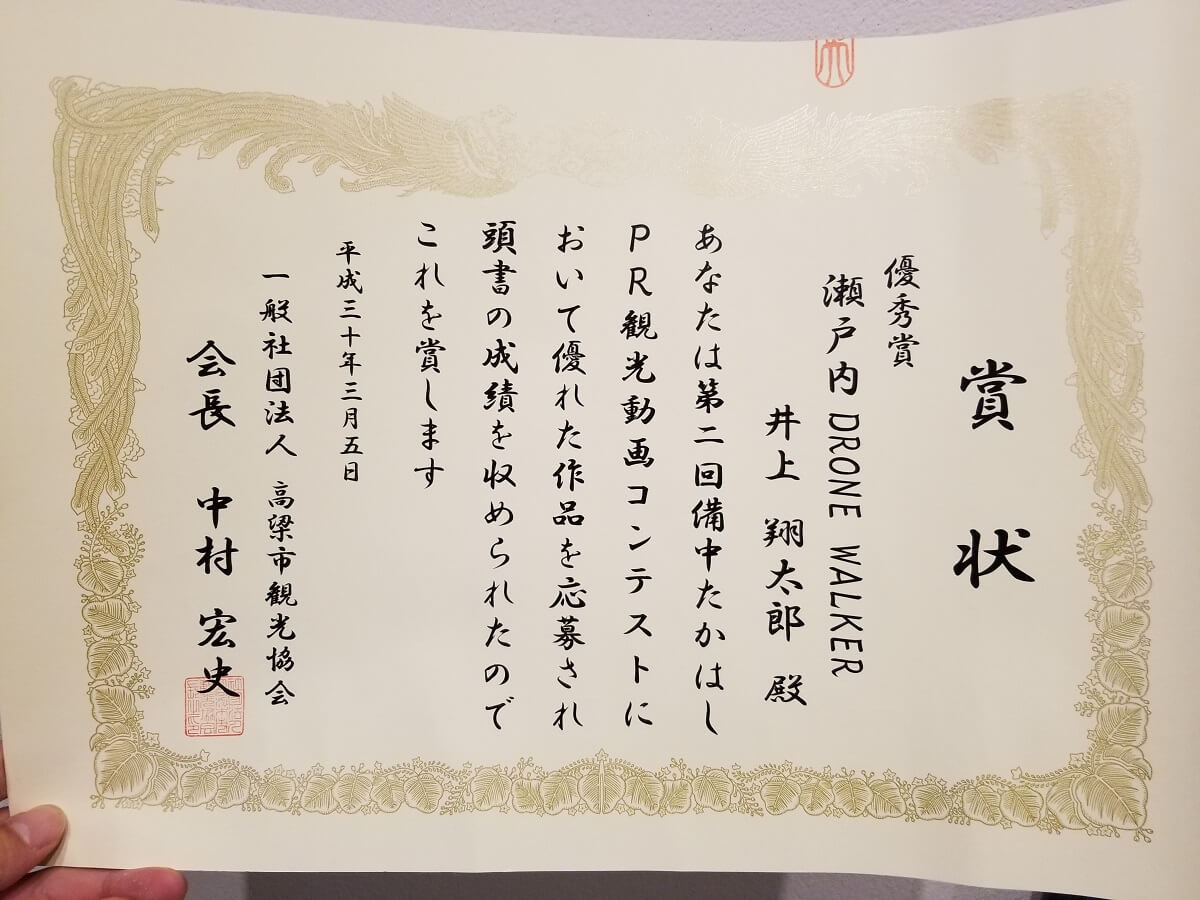 賞状
優秀賞
瀬戸内 DRONE WALKER
井上 翔太郎 殿
あなたは第二回備中たかはし
PR観光動画コンテストに
おいて優れた作品を応募され
頭書の成績を収められたので
これを賞します
平成三十年三月五日
一般社団法人 高梁市観光協会
会長 中村 宏史